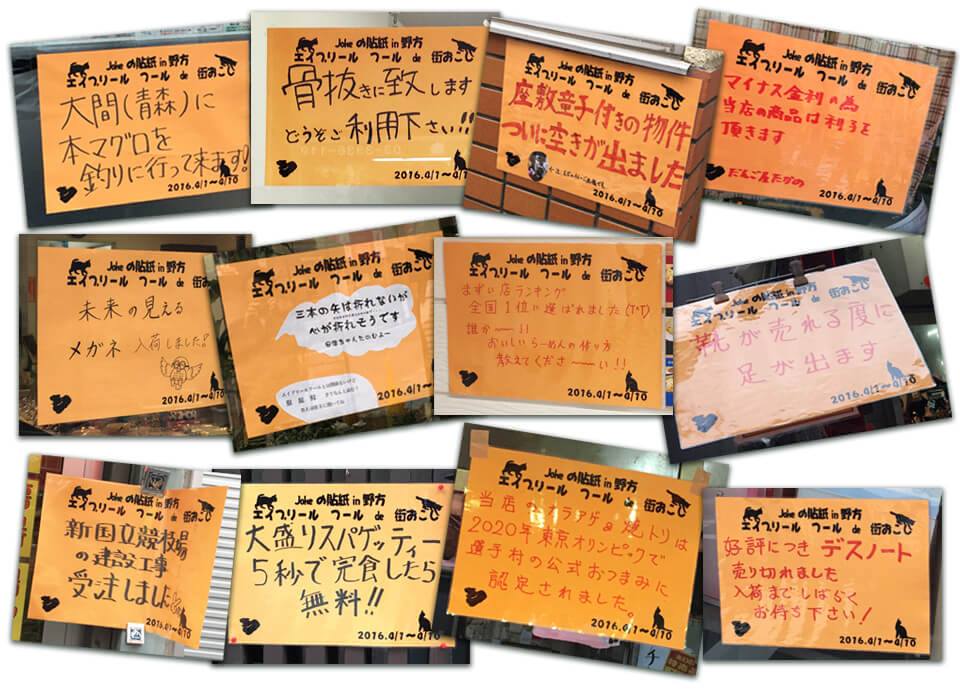 Jokeの貼紙in野方
エイプリール フール de 街おこし
大間(青森)に
本マグロを
釣りに行って来ます!
2016.4/1〜4/10
Jokeの貼紙in野方
エイプリール フール de 街おこし
骨抜きに致します
どうぞご利用下さい!!
2016.4/1〜4/10
Jokeの貼紙in野方
エイプリール フール de 街おこし
座敷童子付きの物件
ついに空きが出ました
2016.4/1〜4/10
Jokeの貼紙in野方
エイプリール フール de 街おこし
マイナス金利の為
当店の商品は利子を
頂きます
だんご屋たかの
2016.4/1〜4/10
Jokeの貼紙in野方
エイプリール フール de 街おこし
未来の見える
メガネ 入荷しました!!
2016.4/1〜4/10
Jokeの貼紙in野方
エイプリール フール de 街おこし
三本の矢は折れないが
心が折れそうです
2016.4/1〜4/10
Jokeの貼紙in野方
エイプリール フール de 街おこし
まずい店ランキング
全国1位に選ばれました(T*T)
誰か〜!!
おいしいらーめんの作り方
教えてくださ〜い!!
2016.4/1〜4/10
Jokeの貼紙in野方
エイプリール フール de 街おこし
靴が売れる度に
足が出ます
2016.4/1〜4/10
Jokeの貼紙in野方
エイプリール フール de 街おこし
新国立競技場
の建設工事
受注しました
2016.4/1〜4/10
Jokeの貼紙in野方
エイプリール フール de 街おこし
大盛りスパゲッティー
5秒で完食したら
無料!!
2016.4/1〜4/10
Jokeの貼紙in野方
エイプリール フール de 街おこし
当店のカラアゲ&焼トリは
2020年東京オリンピックで
選手村の公式おつまみに
認定されました。
2016.4/1〜4/10
Jokeの貼紙in野方
エイプリール フール de 街おこし
好評につき デスノート
売り切れました
入荷までしばらく
お待ち下さい!
2016.4/1〜4/10